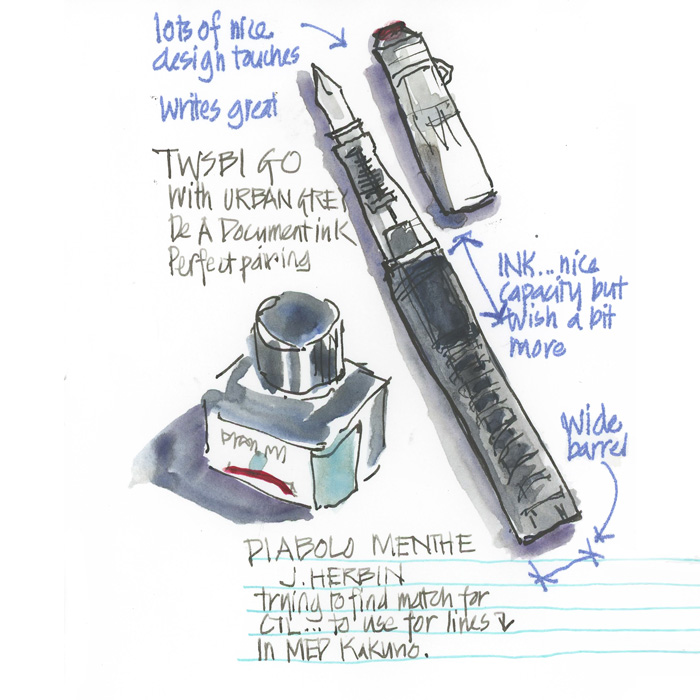 lots of nice
design touches
Writes great
TWSBI GO
With URBAN GREY
De A Document ink
Perfect pairing
INK...nice
capacity but
Wish a bit
more
Wide
barrel
DIABOLO MENTHE
J. HERBIN
trying to find match for
CTL... to use for lines
In MED Kakuno.